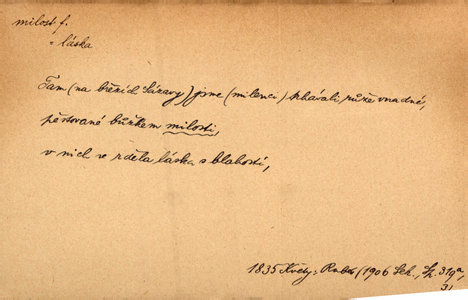 milost f.
= láska
Tam (na březích Sázavy) jsme (milenci) trhávali růže vnadné,
pěstované bůžkem milosti,
v nich se rděla láska s blahostí,
1835 Květy: Rubeš (1906 Sch., Sp. 319a,
31